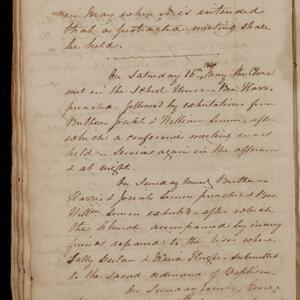 in May when it is intended
that a protracted meeting shall
be held.
On Saturday 16th May the Church
met in the School House Bro. Harris
preached, followed by exhortations from
Brethren Joseph & William Lemen, after
which a conference meeting was
held services again in the afternoon
& at night.
On Sunday Brethren
Harris & Josiah Lemen preached & Bro.
Wm Lemen exhorted after which
The Church accompanied by many
friends repaired to the water where
Sally and Maria submitted
to the sacred ordinance of Baptism.
On Sunday